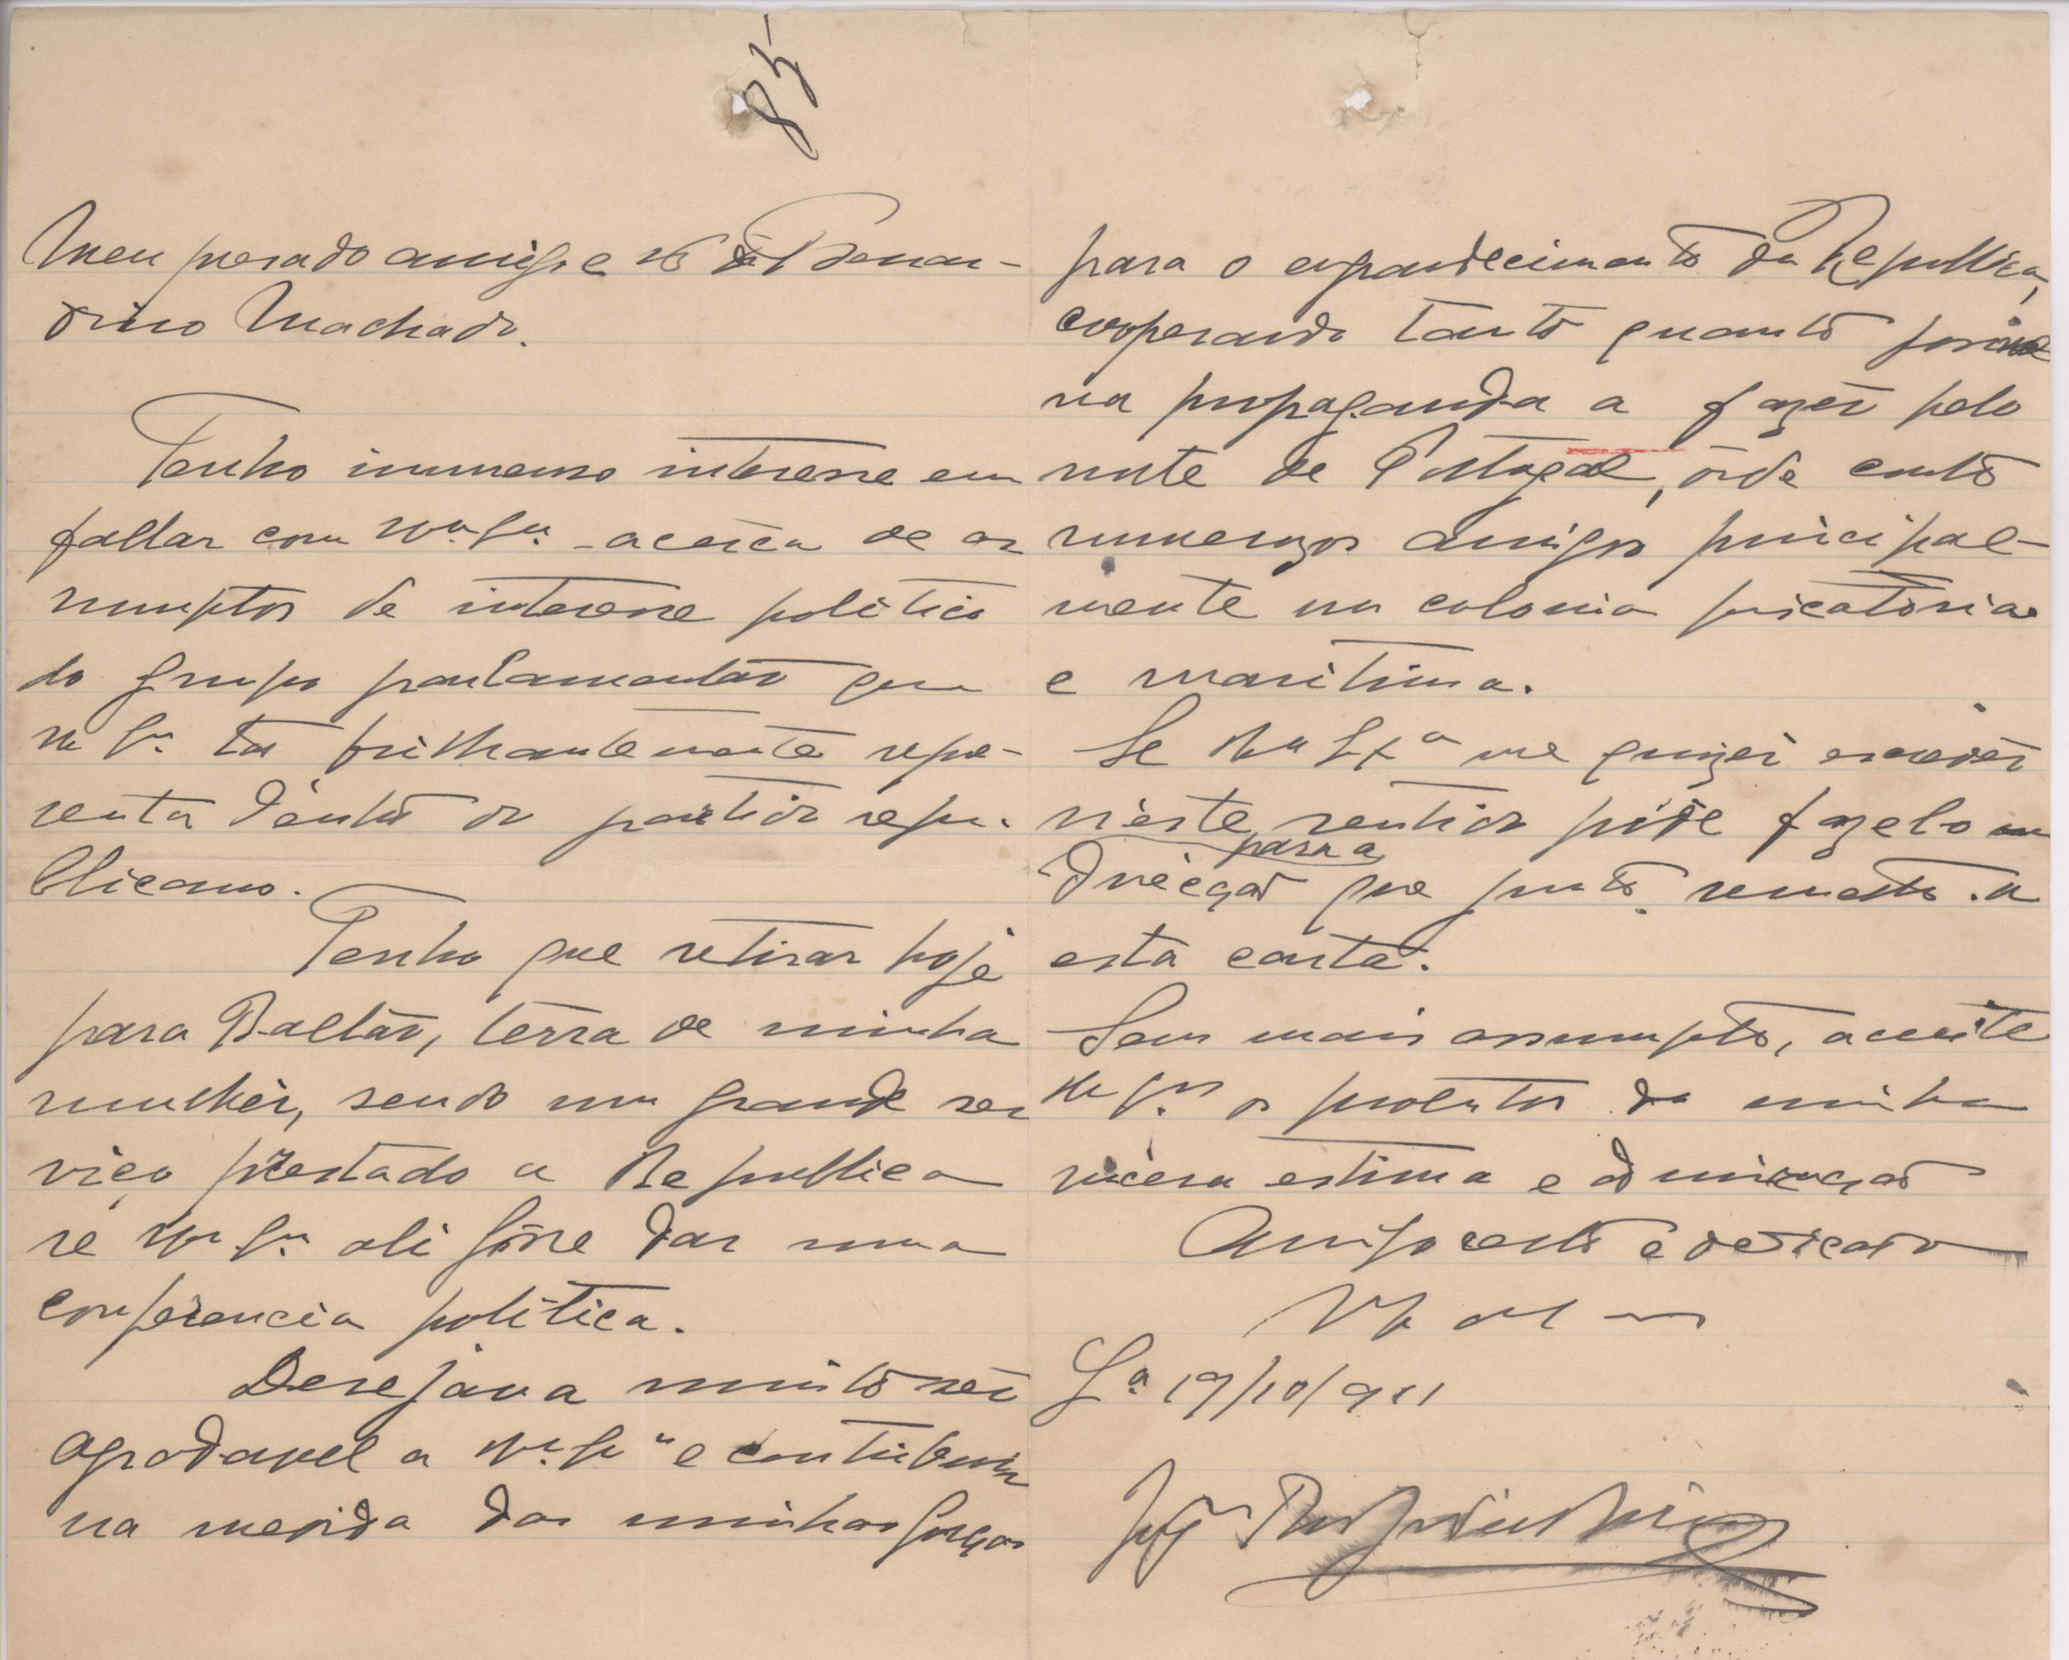 85
Meu presado amigo e Bernar-
dino Machado.
Tenho immenso interesse em
fallar com acêrca de as
sumptos de interesse politico
do grupo parlamentar que
tão brilhantemente repre-
senta dentro do partido repu-
blicano.
Tenho que retirar hoje
para Baltar, terra de minha
mulhér, sendo um grande ser
viço prestado a Republica
se ali fôsse dar uma
conferencia politica.
Desejava muito ser
agradavel a e contribuir
na medida das minhas forças
para o engrandecimento da Republica,
cooperando tanto quanto possivel
na propaganda a fazer pelo
norte de Portugal, onde conto
numerozos amigos principal-
mente na colonia piscatoria
e maritima.
Se Exª me quizer
n'este sentido póde fazelo
para a
direcção que junto remetto a
esta carta.
Sem mais assumpto, acceite
os protestos da minha
sincera estima e admiração
Amigo certo e dedicado
19/10/911